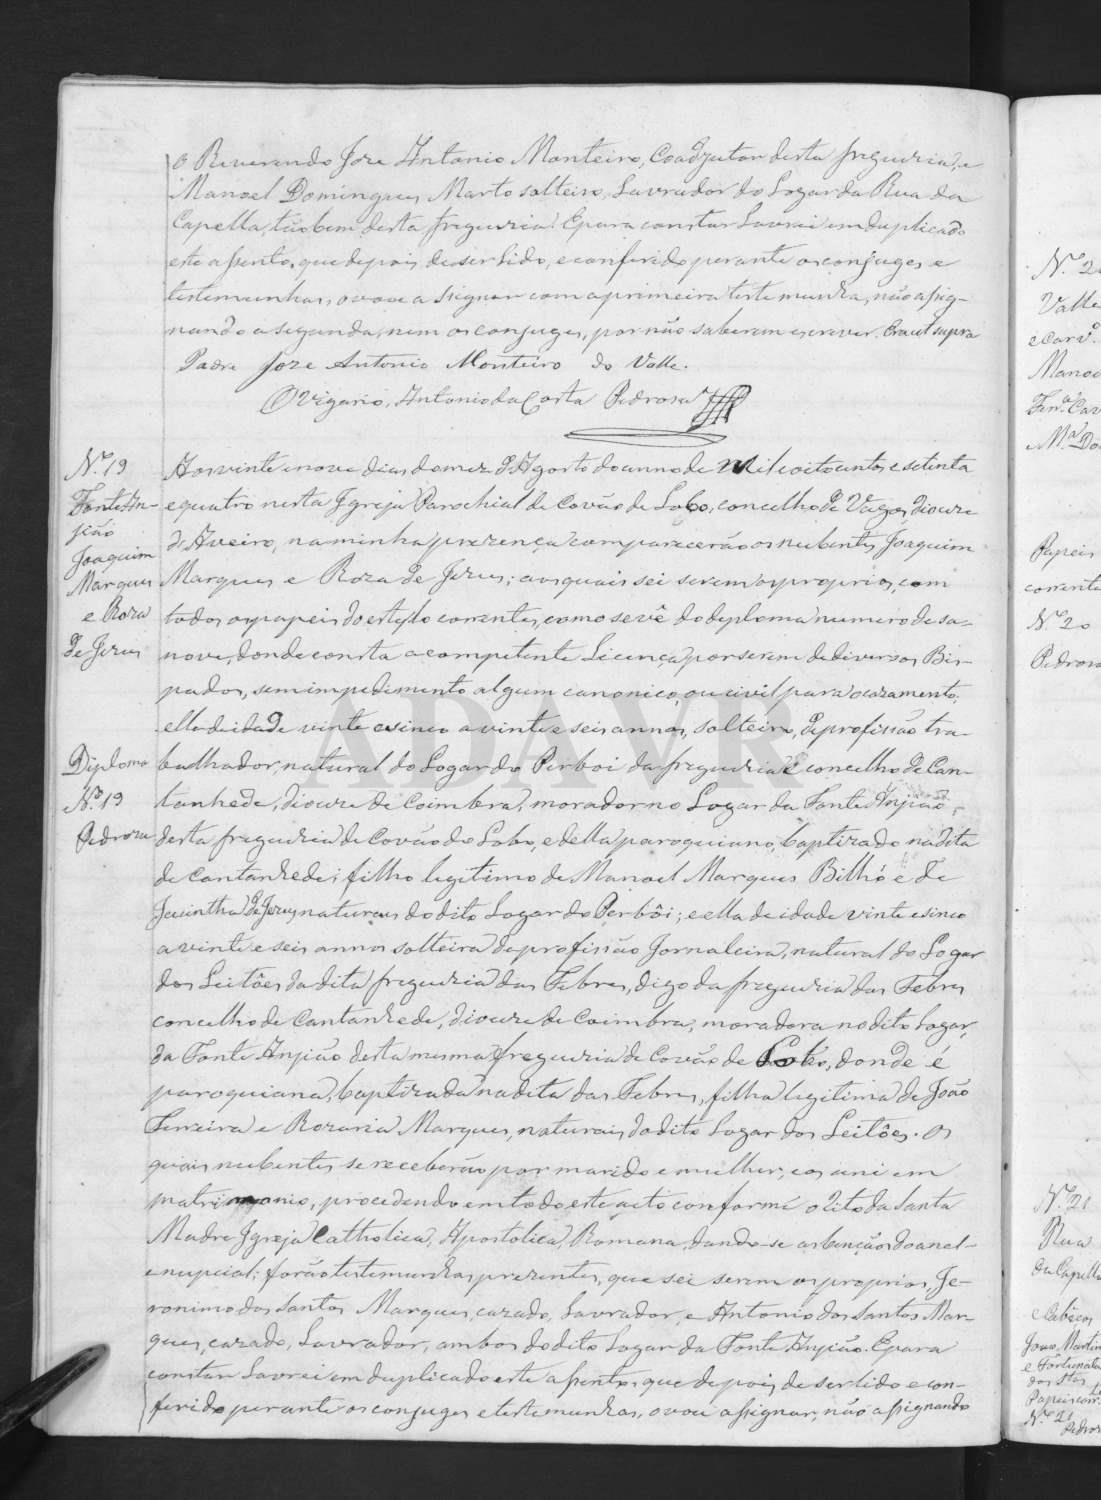 o Reverendo Joze Antonio Monteiro, Coadjutor desta freguezia, e
Manoel Domingues Marto solteiro, Lavrador do Logar da Rua da
Capella, tãobem desta freguezia. E para constar lavrei em duplicado
este assento, que depois de ser lido, e conferido perante os conjuges, e
testemunhas, o vou assignar com a primeira testemunha, não assig-
nando a segunda, nem os conjuges, por não saberem escrever. Era ut supra
Padre Joze Antonio Monteiro do Valle.
O Vigario, Antonio da Costa Pedrosa
N.º 19
Fonte An-
jião
Joaquim
Marques
e Roza
de Jezus
Diploma
N.º 19
Pedroza
Aos vinte e nove dias do mez d'Agosto do anno de mil e oitocentos e setenta
e quatro nesta Igreja Parochial de Covão de Lobo, concelho de Vagos, dioceze
d'Aveiro, na minha prezença comparecerão os nubentes Joaquim
Marques e Roza de Jezus; aos quais sei serem os proprios, com
todos os papeis do estylo correntes, como se vê do deploma numero deza-
nove, donde consta a competente Licença por serem de diversos Bis-
pados, sem impedimento algum canonico, ou civil para o cazamento;
elle de idade vinte e sinco a vinte e seis annos, solteiro, de profissão tra-
balhador, natural do Logar do Perboi da freguezia e concelho de Can-
tanhede, dioceze de Coimbra, morador no Logar da Fonte Anjião,
desta freguezia de Covão do Lobo, e della paroquiano, baptizado na dita
de Cantanhede; filho legitimo de Manoel Marques Bilhó e de
Jacintha de Jezus, naturais do dito Logar do Perbôi; e ella de idade vinte e sinco
a vinte e seis annos solteira de profissão Jornaleira, natural do Logar
dos Leitões da dita freguezia das Febres, digo da freguezia das Febres
concelho de Cantanhede, dioceze de Coimbra, moradora no dito Logar,
da Fonte Anjião desta mesma freguezia de Covão de Lobo, donde é
paroquiana, baptizada na dita das Febres, filha legitima de João
Ferreira e Rozaria Marques, naturais do dito Logar dos Leitões. Os
quais nubentes se receberão por marido e mulher, e os uni em
matrimonio, procedendo em todo este acto conforme o rito da Santa
Madre Igreja Catholica, Apostolica, Romana, dando-se as bençãos do anel-
e nupcial; forão testemunhas prezentes, que sei serem os proprios, Je-
ronimo dos Santos Marques, cazado, lavrador, e Antonio dos Santos Mar-
ques, cazado, Lavrador, ambos do dito Logar da Fonte Anjião. E para
constar lavrei em duplicado este assento, que depois de ser lido e con-
ferido perante os conjuges e testemunhas, o vou assignar, não assignando
ADAVR
N.º 2
Valle
e Carv.º
Manoe
Fern.ª Car
e M.ª Do
Papeis
corrente
N.º 20
Pedroza
N.º 21
Rua
da Capella
e Cabeços
Joao Martin
e Fortunata
dos Stos
Papeis corr.
N.º 21
Pedroz